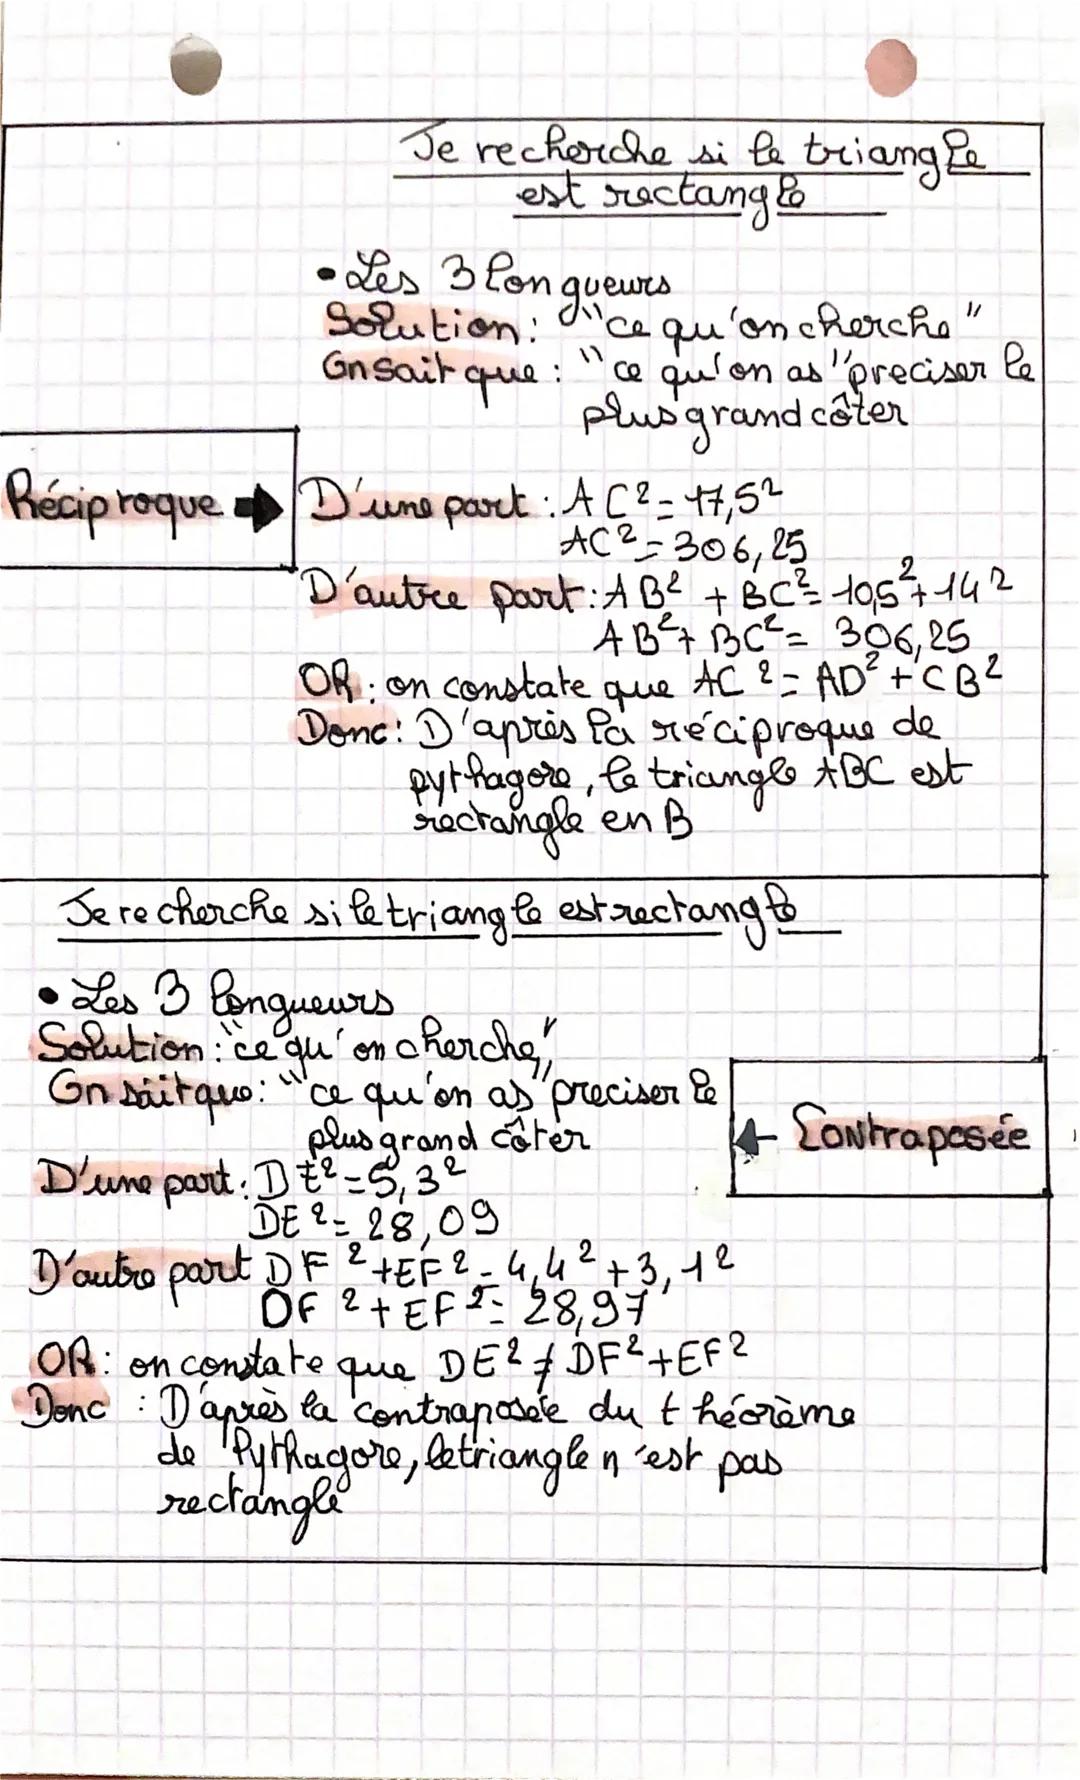 Je recherche si le triangle
est rectangle
• Les 3 longueurs
Solution : "ce qu'on cherche"
On sait que : "ce qu'on as" preciser le
plus grand côter
Réciproque ➡
D'une part : AC² = 17,5²
AC² = 306,25
D'autre part : AB² + BC² = 10,5² + 14²
AB² + BC² = 306,25
OR : on constate que AC² = AD² + CB²
Donc : D'après la réciproque de
pythagore, le triangle ABC est
rectangle en B
Je recherche si le triangle est rectangle
• Les 3 longueurs
Solution : "ce qu'on cherche"
On sait que : "ce qu'on as" preciser le
plus grand côter
← Contraposée
D'une part : DE² = 5,3²
DE² = 28,09
D'autre part DF² + EF² = 4,4² + 3,1²
DF² + EF² = 28,97
OR : on constate que DE² ≠ DF² + EF²
Donc : D'après la contraposée du théorème
de Pythagore, le triangle n'est pas
rectangle